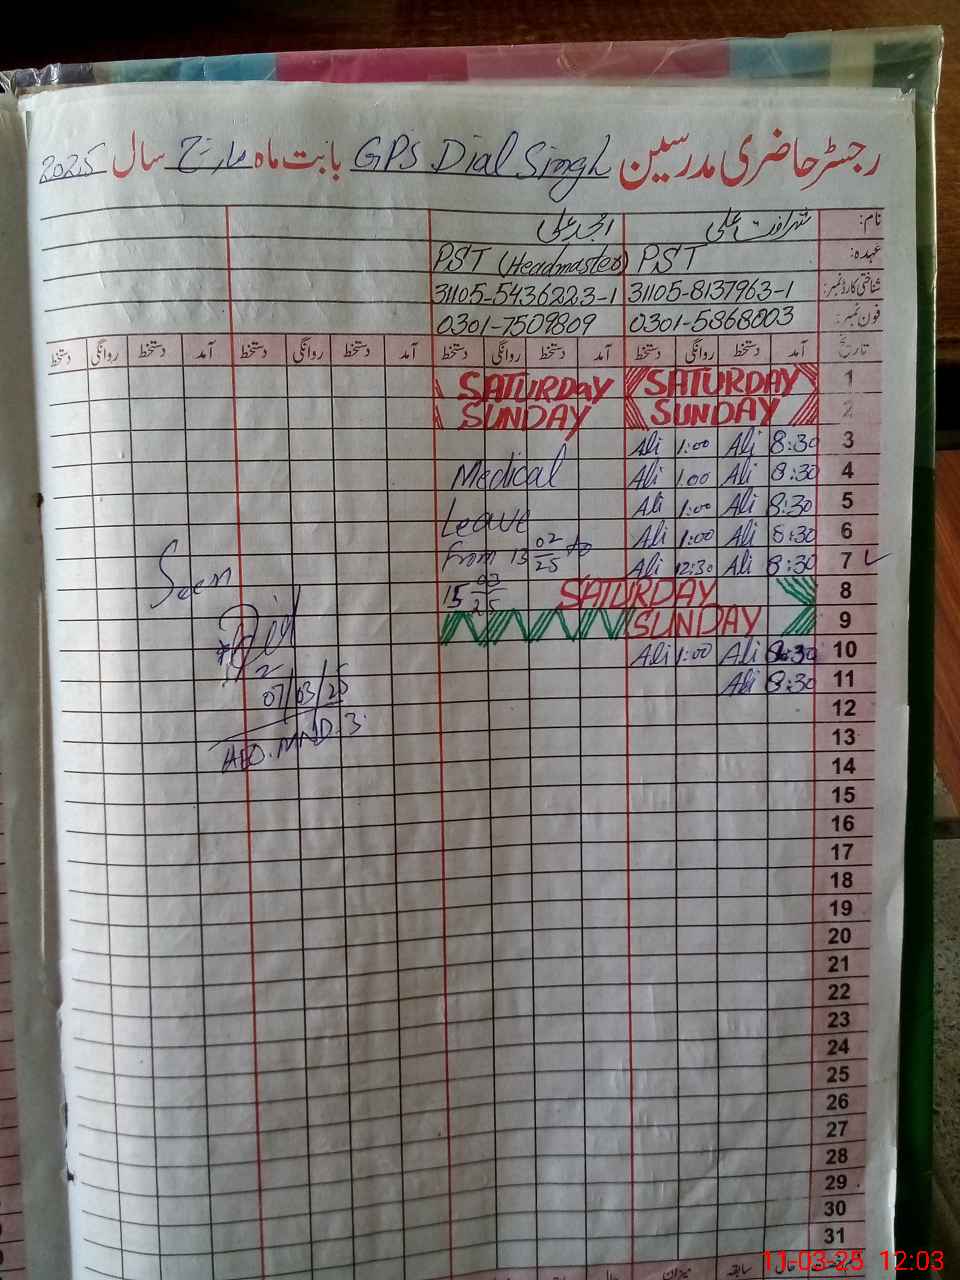 رجسٹر حاضری مدرسین GPS Dial Singh بابت ماہ مارچ سال 2025
نام: شرافت علی امجد علی
عہدہ: PST PST (Headmaster)
شناختی کارڈ نمبر: 31105-8137963-1 31105-5436223-1
فون نمبر: 0301-5868003 0301-7509809
تاریخ آمد دستخط روانگی دستخط آمد دستخط روانگی دستخط آمد دستخط روانگی دستخط آمد دستخط روانگی دستخط
1 SATURDAY SATURDAY
2 SUNDAY SUNDAY
3 8:30 Ali 1:00 Ali
4 8:30 Ali 1:00 Ali Medical
5 8:30 Ali 1:00 Ali Leave
6 8:30 Ali 1:00 Ali From 13 02/25 to
7 8:30 Ali 12:30 Ali
8 SATURDAY 15 03/25
9 SUNDAY
10 8:30 Ali 1:00 Ali
11 8:30 Ali
Seen
07/03/25
AEO. MND. 3
12
13
14
15
16
17
18
19
20
21
22
23
24
25
26
27
28
29
30
31
میزان سابقہ حال
11-03-25 12:03